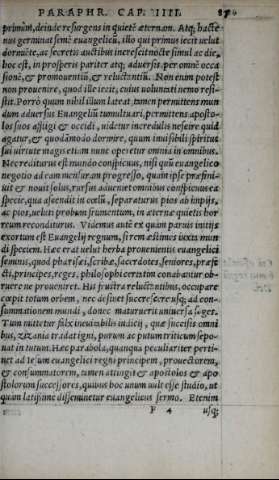 PARAPHR. CAP. IIII.
primùm, deinde resurgens in quietē æternam. Atq; hacte
nus germinat semē euangelicū, illo qui primus iecit uelut
dormiēte, ac secretis auctibus increscit nocte simul ac die,
hoc est, in prosperis pariter atq; aduersis, per omnē occa
sionē, & promouentiū, & reluctantiū. Non enim potest
non prouenire, quod ille iecit, cuius uoluntati nemo resi-
stit. Porrò quum nihil illum lateat, tamen permittens mun
dum aduersus Euangeliū tumultuari, permittens aposto-
los suos affligi & occidi, uidetur incredulis nescire quid
agatur, & quodāmodo dormire, quum inuisibili spiritus
sui uirtute magis etiam nunc operetur omnia in omnibus.
Nec reditturus est mundo conspicuus, nisi quū euangelico
negotio ad eam mensuram progresso, quam ipse præfini-
uit & nouit solus, rursus adueniet omnibus conspicuus ea
specie, qua ascendit in cœlū, separaturus pios ab impijs,
ac pios, ueluti probum frumentum, in æternæ quietis hor
reum reconditurus. Videmus autē ex quàm paruis initijs
exortum est Euangelij regnum, si rem æstimes iuxta mun
di speciem. Hæc erat uelut herba prouenientis euangelici
seminis, quod pharisæi, scribæ, sacerdotes, seniores, præfe
cti, principes, reges, philosophi certatim conabantur ob-
ruere ne proueniret. His frustra reluctantibus, occupare
cœpit totum orbem, nec desinet succrescere usq; ad con-
summationem mundi, donec maturuerit uniuersa seges.
Tum mittetur falx ineuitabilis iudicij, quæ succisis omni
bus, zizania tradat igni, purum ac putum triticum sepo-
nat in tutum. Hæc parabola, quanquā peculiariter perti-
net ad Iesum euangelici regni principem, prouectorem,
& consummatorem, tamen attingit & apostolos & apo
stolorum successores, quibus hoc unum uult esse studio, ut
quàm latissimè disseminetur euangelicus sermo. Etenim
F 4 usq;